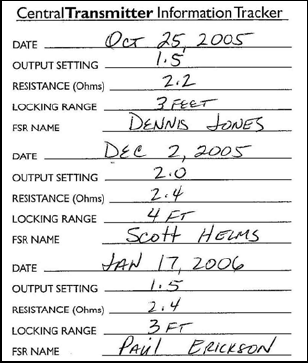 Central Transmitter Information Tracker
DATE Oct 25, 2005
OUTPUT SETTING 1.5
RESISTANCE (Ohms) 2.2
LOCKING RANGE 3 FEET
FSR NAME DENNIS JONES
DATE DEC 2, 2005
OUTPUT SETTING 2.0
RESISTANCE (Ohms) 2.4
LOCKING RANGE 4 FT
FSR NAME SCOTT HELMS
DATE JAN 17, 2006
OUTPUT SETTING 1.5
RESISTANCE (Ohms) 2.4
LOCKING RANGE 3 FT
FSR NAME PAUL ERICKSON